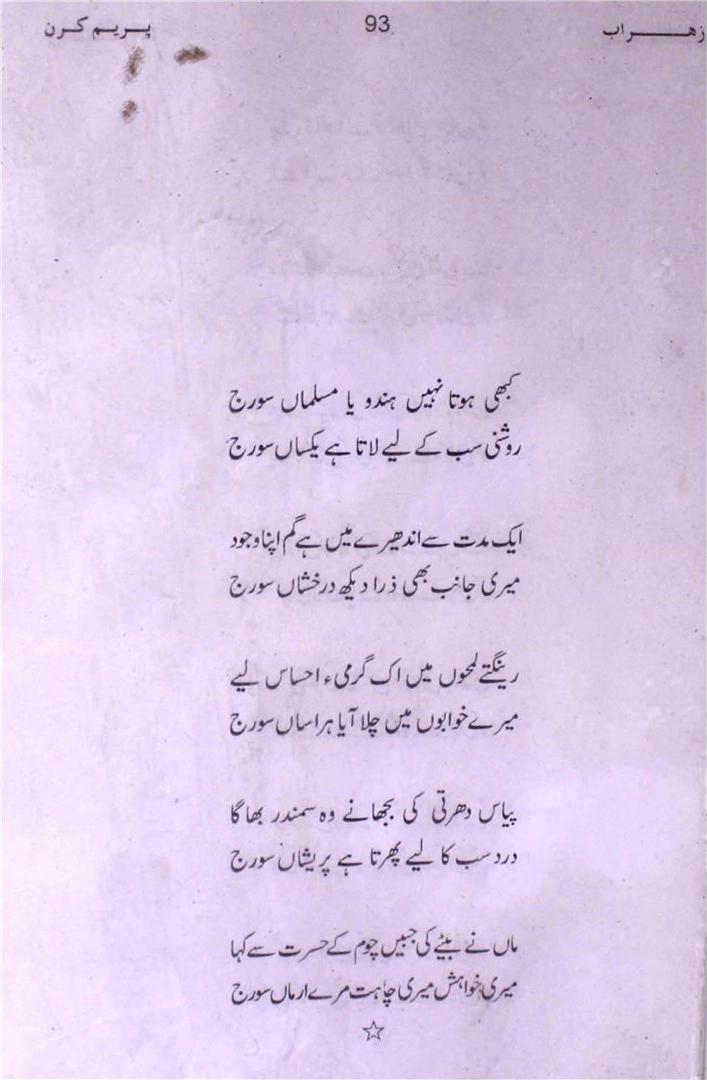 زهـــــراب 93 پـریـم کـرن
کبھی ہوتا نہیں ہندو یا مسلماں سورج
روشنی سب کے لیے لاتا ہے یکساں سورج
ایک مدت سے اندھیرے میں ہے گم اپنا وجود
میری جانب بھی ذرا دیکھ درخشاں سورج
رینگتے لمحوں میں اک گرمیء احساس لیے
میرے خوابوں میں چلا آیا ہراساں سورج
پیاس دھرتی کی بجھانے وہ سمندر بھاگا
درد سب کا لیے پھرتا ہے پریشاں سورج
ماں نے بیٹے کی جبیں چوم کے حسرت سے کہا
میری خواہش میری چاہت مرے ارماں سورج
☆